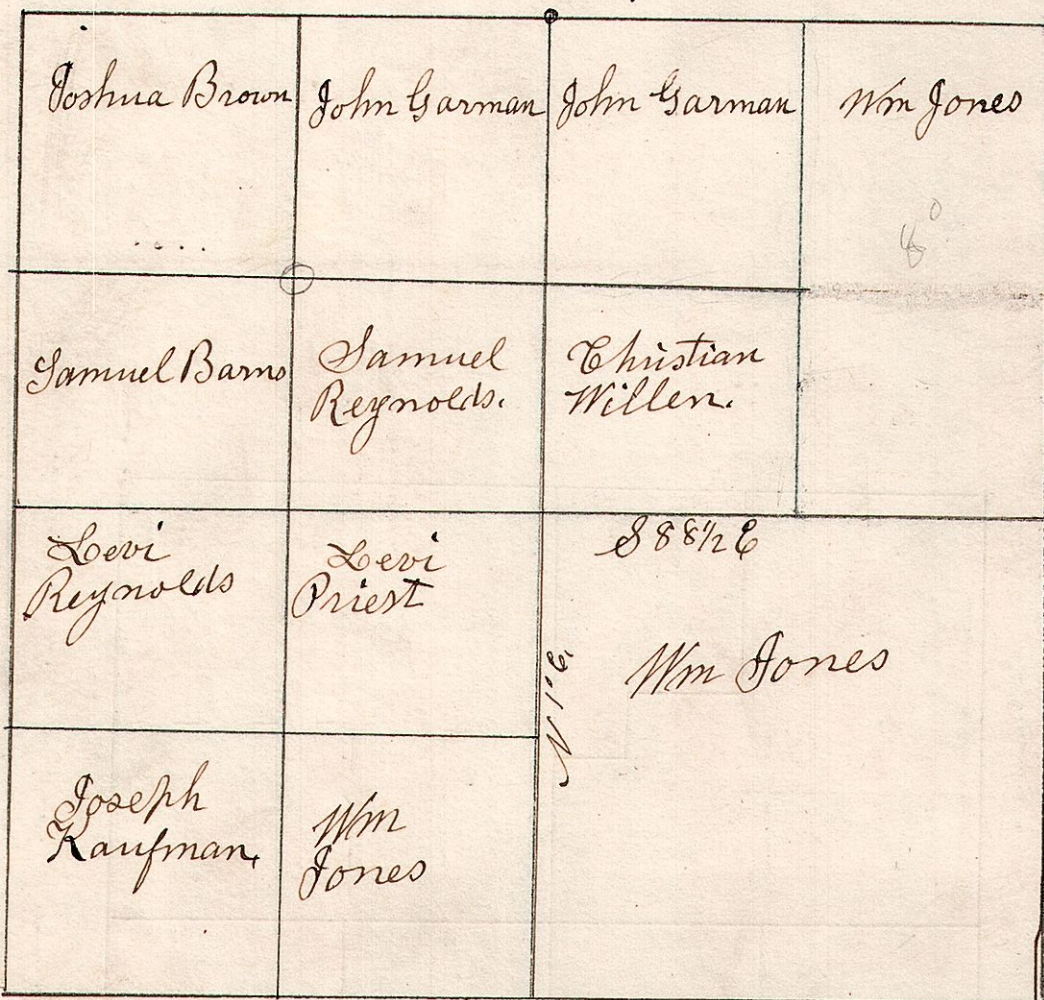 Joshua Brown
John Garman
John Garman
Wm Jones
Samuel Barns
Samuel
Reynolds.
Christian
Willen.
Levi
Reynolds
Levi
Priest
S 88 1/2 E
N 1° E.
Wm Jones
Joseph
Kaufman,
Wm
Jones